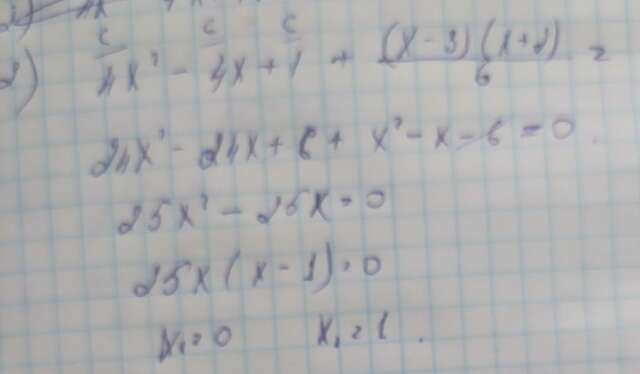 2) 4x² - 4x + 1 + (x-3)(x+2)/6 =
24x² - 24x + 6 + x² - x - 6 = 0
25x² - 25x = 0
25x(x - 1) = 0
x₁ = 0 x₁ = 1.